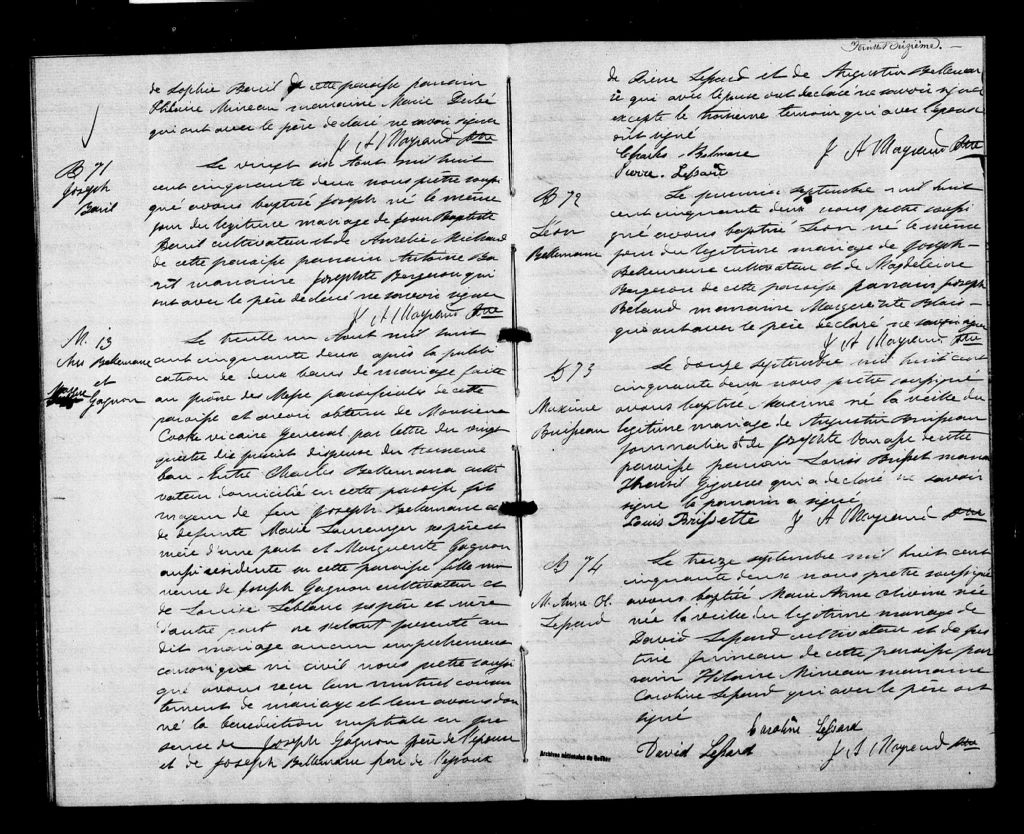 de Sophie Baril de cette paroisse parrain
Hilaire Mineau marraine Marie Dubé
qui ont avec le père declaré ne savoir signer
J A Mayrand Ptre
B 71
Joseph
Baril
Le vingt six Aout mil huit
cent cinquante deux nous prêtre soussi
gné avons baptisé Joseph né le même
jour du legitime mariage de Jean Baptiste
Baril cultivateur et de Aurelie Michaud
de cette paroisse parrain Antoine Ba
ril marraine Josephte Bergeron qui
ont avec le père declaré ne savoir signer
J A Mayrand Ptre
M. 13
Chs Bellemare
et
Gagnon
Le trente un Aout mil huit
cent cinquante deux après la publi
cation de deux bans de mariage faite
au prône des Messe paroissiales de cette
paroisse et avoir obtenu de Monsieur
Cooke vicaire General par lettre du vingt
quatre du présent dispense du troisieme
ban Entre Charles Bellemare culti
vateur domicilié en cette paroisse fils
majeur de feu Joseph Bellemare et
de defunte Marie ses père et
mère d'une part et Marguerite Gagnon
aussi residente en cette paroisse fille mi
neure de Joseph Gagnon cultivateur et
de Louise Leblanc ses père et mère
d'autre part ne s'etant presenté au
dit mariage aucun empechement
canonique ni civil nous prêtre soussi
gné avons reçu leur mutuel consen
tement de mariage et leur avons don
né la benediction nuptiale en pre
sence de Joseph Gagnon père de l'epouse
et de Joseph Bellemare père de l'epoux
Feuillet Onzième. —
de Pierre Lesard et de Augustin Bellemare
qui avec l'epouse ont declaré ne savoir signer
excepté le troisieme temoin qui avec l'epoux
ont signé
Charles Belmare J A Mayrand Ptre
Pierre Lesard
B 72
Léon
Bellemare
Le premier septembre mil huit
cent cinquante deux nous prêtre soussi
gné avons baptisé Leon né le même
jour du legitime mariage de Joseph
Bellemare cultivateur et de Magdeleine
Bergeron de cette paroisse parrain Joseph
Beland marraine Marguerite Blais
qui ont avec le père declaré ne savoir signer
J A Mayrand Ptre
B 73
Maxime
Buisseau
Le douze septembre mil huit cent
cinquante deux nous prêtre soussigné
avons baptisé Maxime né la veille du
legitime mariage de Augustin Buisseau
journalier et de Josephte Vanasse de cette
paroisse parrain Louis Brisset marraine
qui a declaré ne savoir
signer le parrain a signé
Louis Brissette J A Mayrand Ptre
B 74
M. Anne Ol.
Lesard
Le treize septembre mil huit cent
cinquante deux nous prêtre soussigné
avons baptisé Marie Anne Olivine née
née la veille du legitime mariage de
David Lesard cultivateur et de Jus
tine Primeau de cette paroisse par
rain Hilaire Mineau marraine
Caroline Lesard qui avec le père ont
signé
Caroline Lesard
David Lesard J A Mayrand Ptre
Archives nationales du Québec